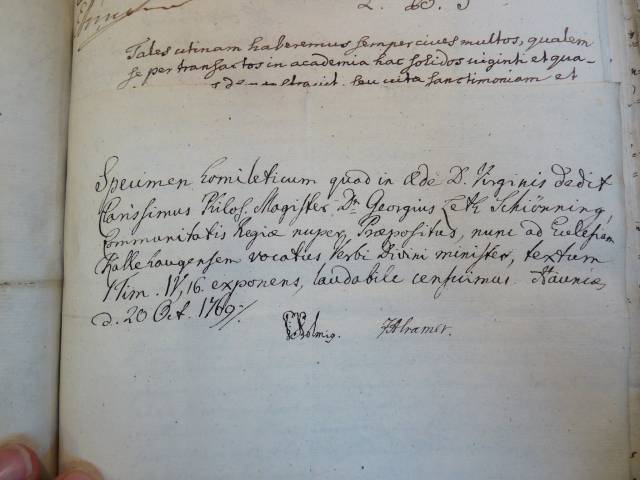 Tales utinam haberemus semper cives multos, qualem
se per transactos in academia hac solidos viginti et qua-
seu vitæ sanctimoniam et
Specimen homileticum quod in æde D. Virginis dedit
Clarissimus Philos. Magister Dn Georgius Zeth Schiönning,
Communitatis Regiæ nuper Præpositus, nunc ad Ecclesiam
Kallehaugensem vocatus Verbi Divini minister, textum
1 Tim. IV, 16. exponens, laudabile censuimus. Hauniæ,
d. 20 Oct. 1769.
Holmig. JACramer.